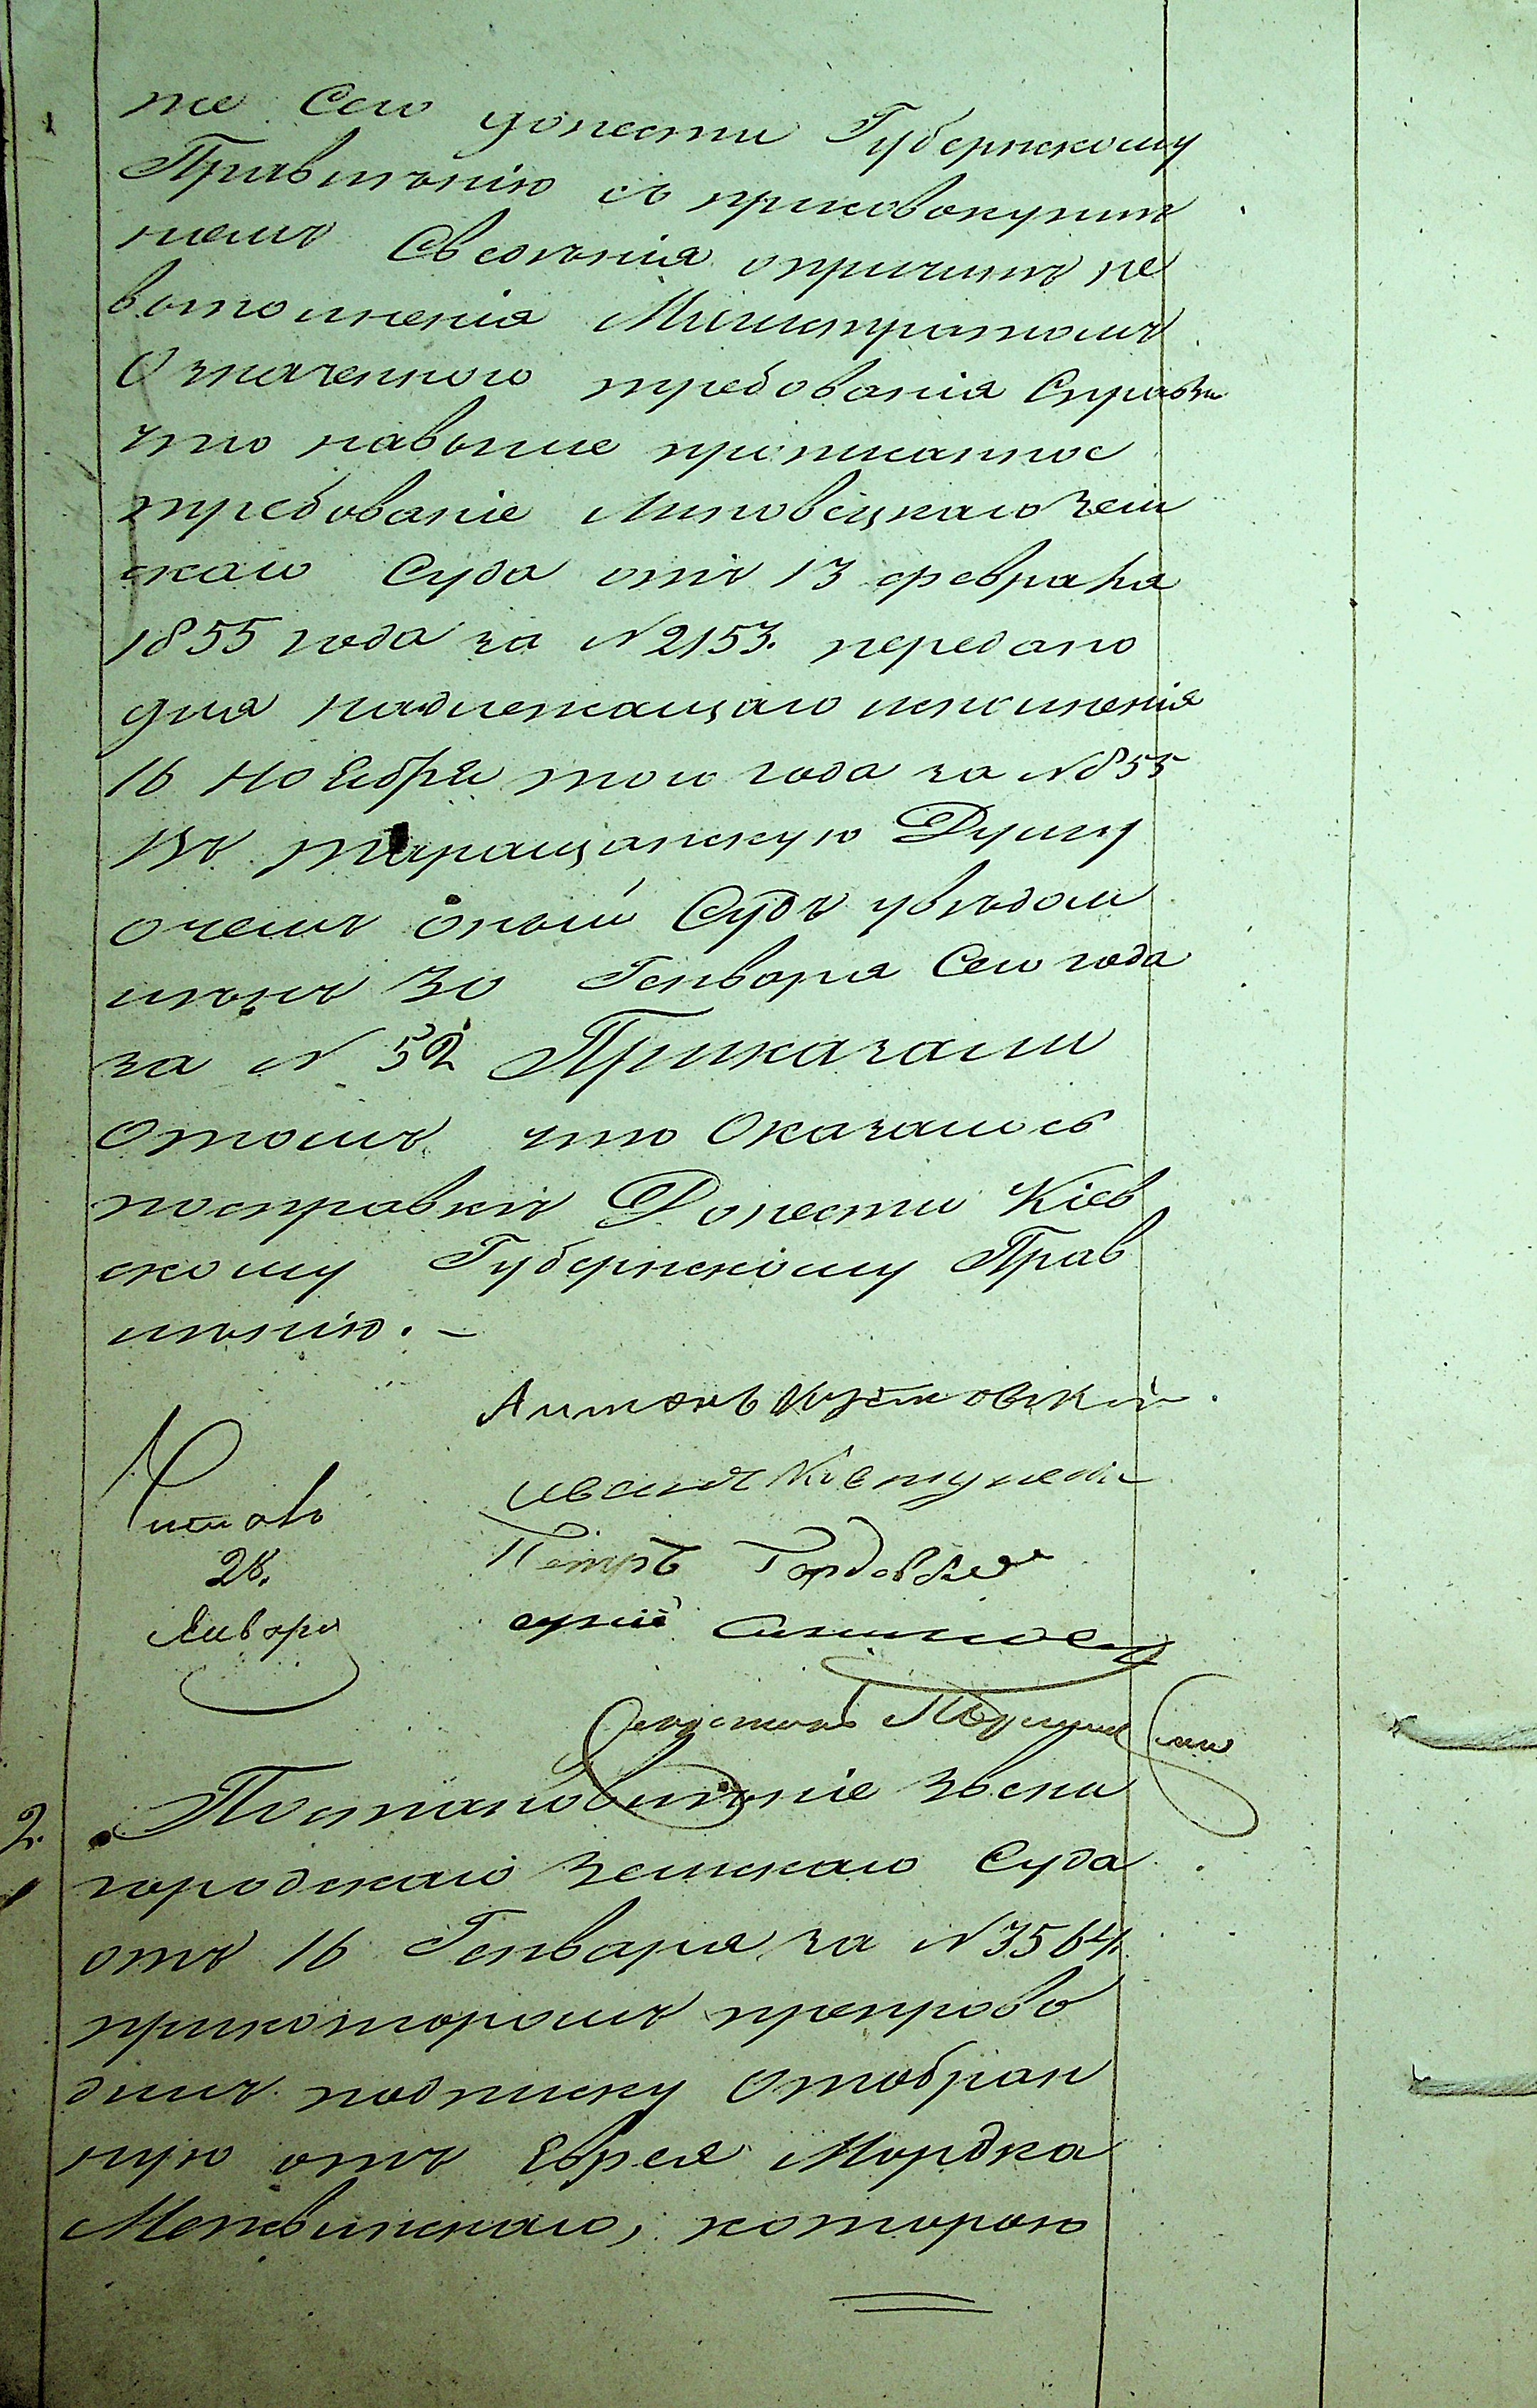 же Сего донести Губернскому
Правленію съ присовокупле
ніемъ Сведенія опричинѣ не
выполненія Магистратомъ
Означеннаго требованія Справка
что навыше прописанное
требованіе Липовецкаго Зем
скаго Суда отъ 13 февраля
1855 года за N 2153. передано
для надлежащаго исполненія
16 Ноября того года за N 855
въ Таращанскую Думу
очемъ оный Судъ увѣдом
ленъ 30 Генваря Сего года
за N 52 Приказали
Отомъ что Оказалось
посправкѣ Донести Кіев
скому Губернскому Прав
ленію. –
Антонъ
Читалъ
28.
Января
Петръ
Постановленіе Звени
2.
городскаго Земскаго Суда
отъ 16 Генваря за N 3564.
прикоторомъ препрово
дилъ подписку Отобран
ную отъ Еврея Мордка
Межвинскаго, которою